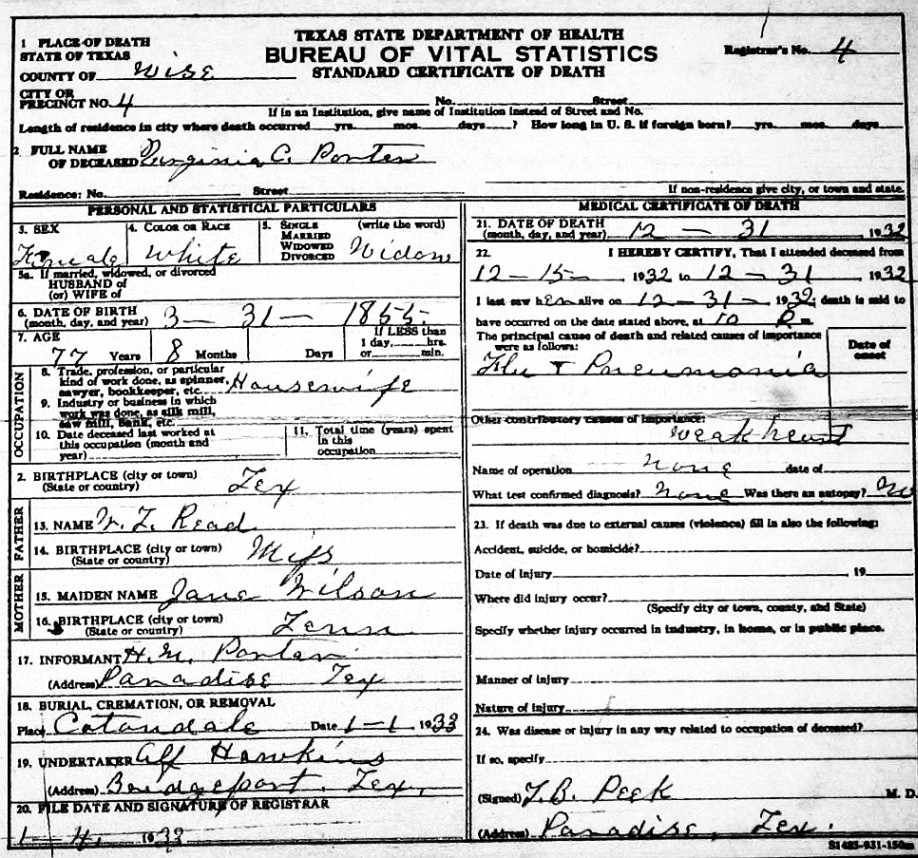 TEXAS STATE DEPARTMENT OF HEALTH
BUREAU OF VITAL STATISTICS
STANDARD CERTIFICATE OF DEATH
Registrar's No. 4
1 PLACE OF DEATH
STATE OF TEXAS
COUNTY OF Wise
CITY OR
PRECINCT NO. 4 No. Street
If in an Institution, give name of Institution instead of Street and No.
Length of residence in city where death occurred yrs. mos. days ? How long in U. S. if foreign born? yrs. mos. days
2 FULL NAME
OF DECEASED Virginia C. Porter
Residence: No. Street
If non-residence give city, or town and state.
PERSONAL AND STATISTICAL PARTICULARS
3. SEX Female
4. COLOR OR RACE White
5. SINGLE MARRIED WIDOWED DIVORCED (write the word) Widow
5a. If married, widowed, or divorced
HUSBAND of
(or) WIFE of
6. DATE OF BIRTH
(month, day, and year) 3 - 31 - 1855
7. AGE
77 Years 8 Months Days If LESS than 1 day, hrs. or min.
OCCUPATION
8. Trade, profession, or particular
kind of work done, as spinner,
sawyer, bookkeeper, etc. Housewife
9. Industry or business in which
work was done, as silk mill,
saw mill, bank, etc.
10. Date deceased last worked at
this occupation (month and
year)
11. Total time (years) spent
in this
occupation
2. BIRTHPLACE (city or town)
(State or country) Tex
FATHER
13. NAME W. Z. Read
14. BIRTHPLACE (city or town)
(State or country) Miss
MOTHER
15. MAIDEN NAME Jane Wilson
16. BIRTHPLACE (city or town)
(State or country) Tenn
17. INFORMANT H. M. Porter
(Address) Paradise Tex
18. BURIAL, CREMATION, OR REMOVAL
Place Cotondale Date 1-1 1933
19. UNDERTAKER Aff Hawkins
(Address) Bridgeport, Tex.
20. FILE DATE AND SIGNATURE OF REGISTRAR
1 - 4, 1933
MEDICAL CERTIFICATE OF DEATH
21. DATE OF DEATH
(month, day, and year) 12 - 31 1932
22. I HEREBY CERTIFY, That I attended deceased from
12-15- 1932 to 12-31 1932
I last saw her alive on 12-31- 1932; death is said to
have occurred on the date stated above, at 10 Pm
The principal cause of death and related causes of importance
were as follows:
Date of
onset
Flu & Pneumonia
Other contributory causes of importance:
weak heart
Name of operation none date of
What test confirmed diagnosis? none Was there an autopsy? No
23. If death was due to external causes (violence) fill in also the following:
Accident, suicide, or homicide?
Date of injury 19
Where did injury occur?
(Specify city or town, county, and State)
Specify whether injury occurred in industry, in home, or in public place.
Manner of injury
Nature of injury
24. Was disease or injury in any way related to occupation of deceased?
If so, specify
(Signed) T. B. Peek M. D.
(Address) Paradise, Tex.
S1485-931-150m